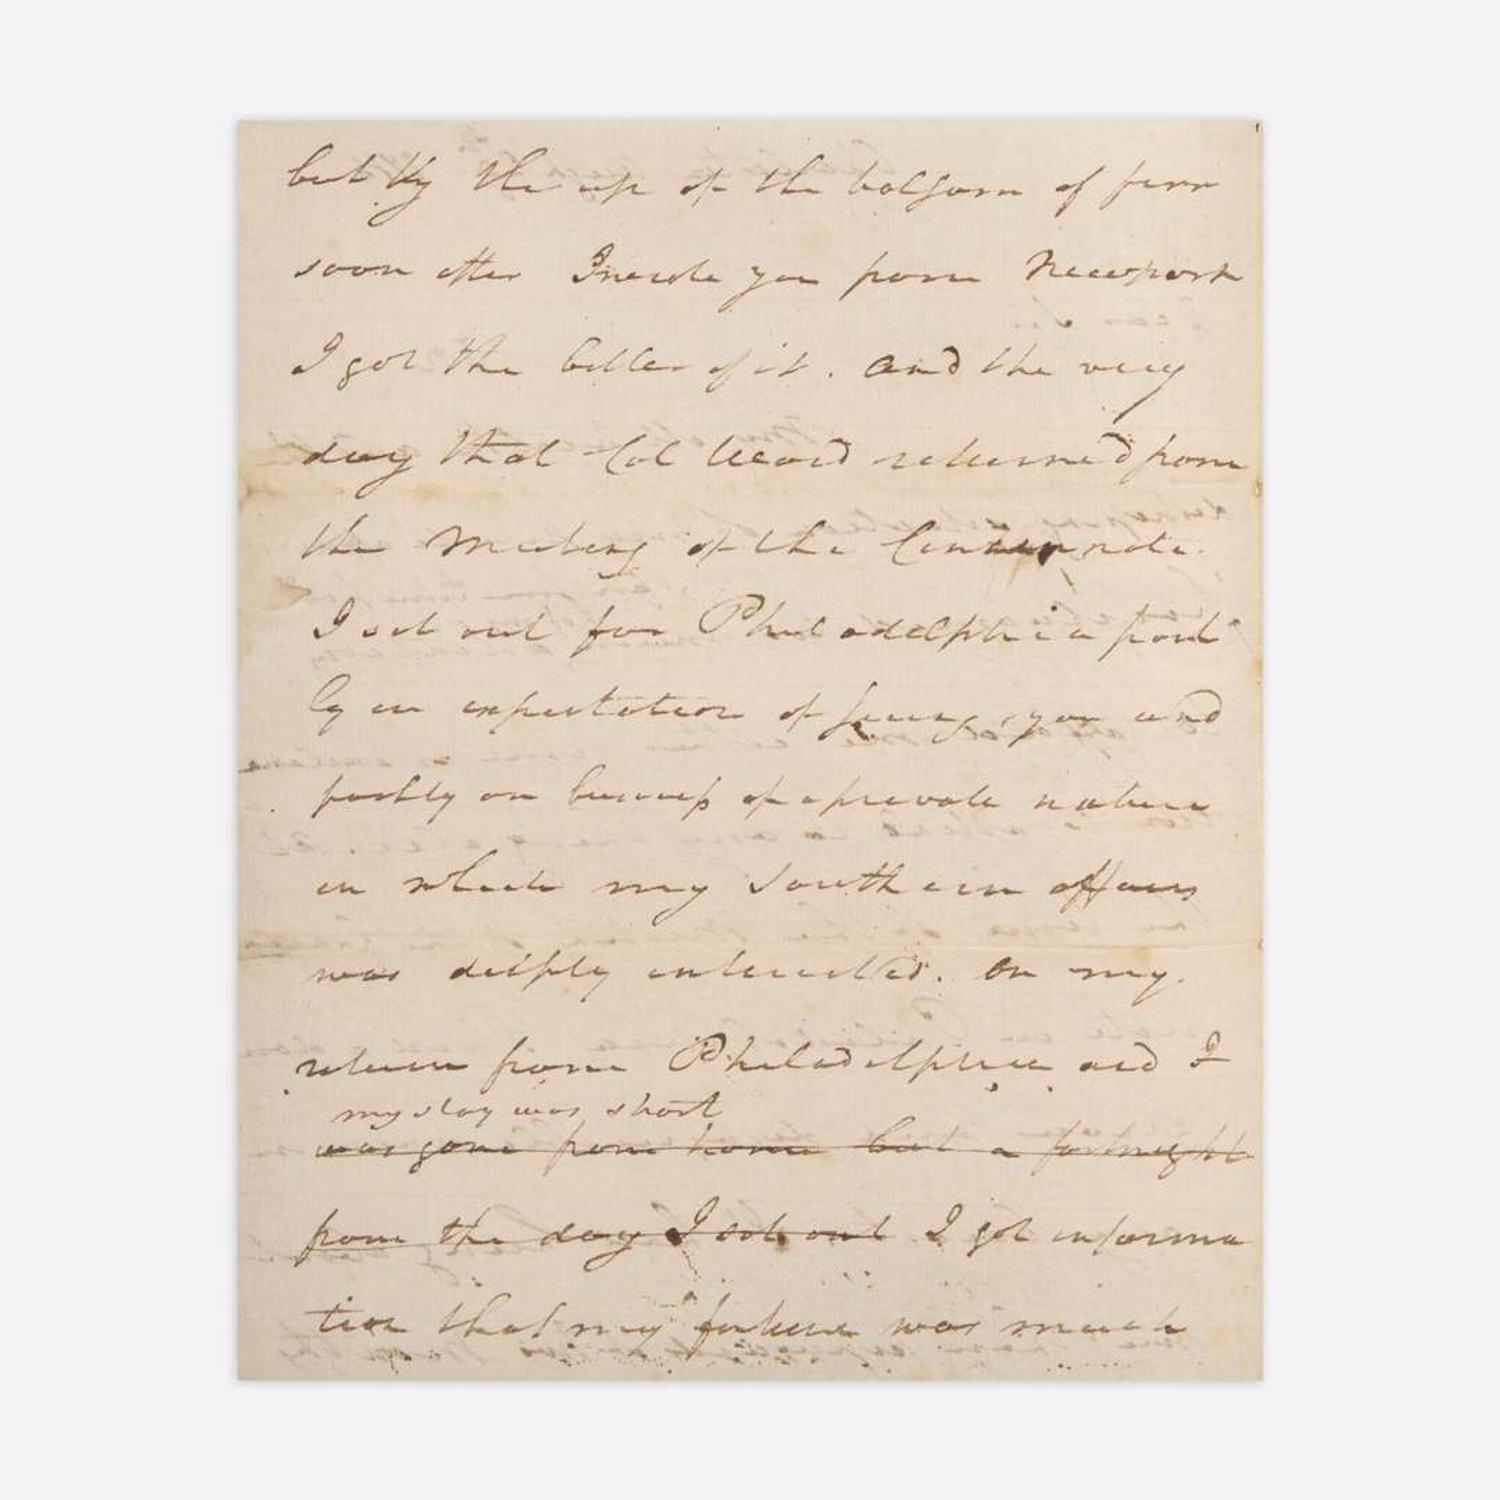 but by the use of the balsom of furr
soon after I wrote you from Newport
I got the better of it. and the very
day that Col Weard returned from
the Meeting of the Cincinnate.
I set out for Philadelphia part
ly in expectation of seeing you and
partly on business of a private nature
in which my Southern affairs
was deeply interested. On my
return from Philadelphia and I
my stay was short
was gone from home but a fortnight
from the day I set out I got informa
tion that my fortune was much